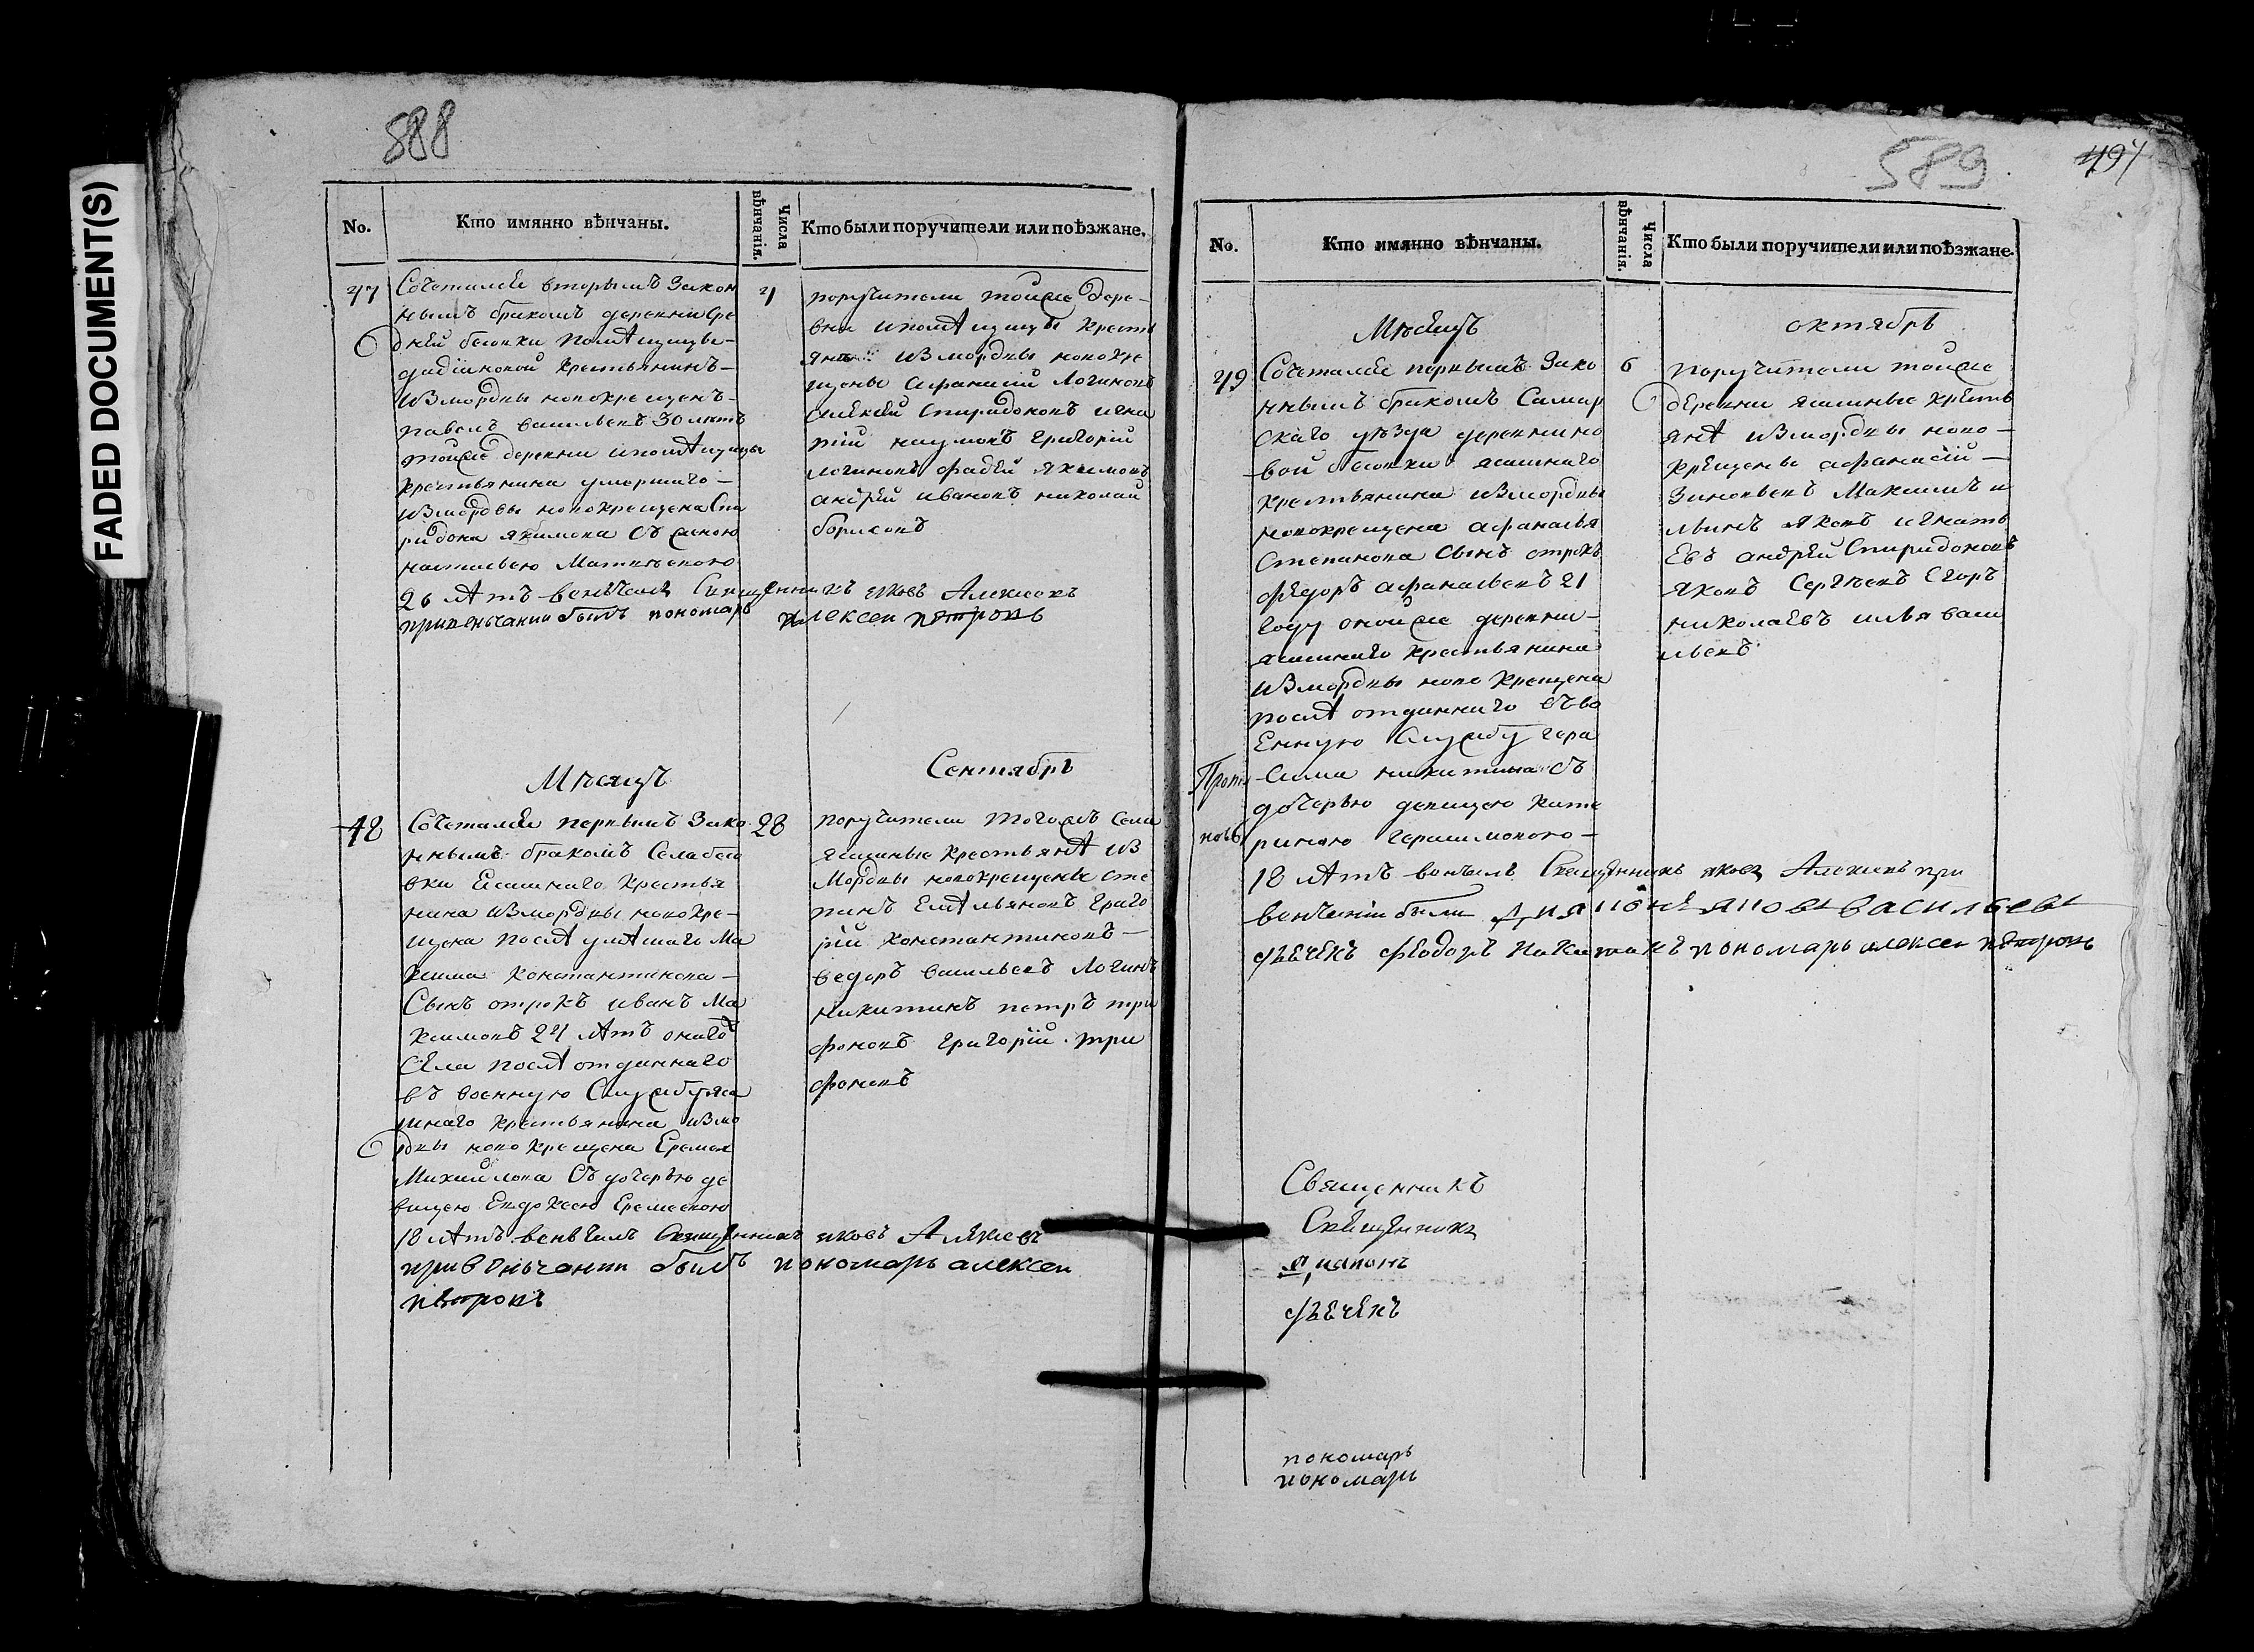 FADED DOCUMENT(S)
588
No.
Кто имянно вѣнчаны.
Числа вѣнчанія.
Кто были поручители или поѣзжане.
47
Сочетался вторымъ закон
нымъ бракомъ деревни Сре
дней безонки помѣщицы
крестьянинъ
измордвы новокрещенъ
павелъ васильевъ 30 лѣтъ
тойже деревни ипомѣщицы
крестьянина умершаго
измордвы новокрещена Спи
ридона якимова съ женою
настасьею Матвѣевою
26 лѣтъ венчалъ Священникъ яковъ Алексеевъ
привенчании былъ пономарь алексеи петровъ
4
поручители тойже дере
вни ипомѣщицы кресть
яне измордвы новокре
щены афанасий логиновъ
алексей Спиридоновъ игна
тий наумовъ григорий
логиновъ фадей якимовъ
андрей ивановъ николай
борисовъ
Мѣсяцъ
Сентябрь
48
Сочетался первымъ зако
ннымъ бракомъ Села безо
вки Ясашнаго крестья
нина измордвы новокре
щена послѣ умѣшаго Ма
ксима константинова
Сынъ отрокъ иванъ Ма
ксимовъ 24 лѣтъ онагож
Села послѣ отданнаго
въ военную Службу яса
шнаго крестьянина измо
рдвы новокрещена Еремея
Михайлова Съ дочерью де
вицею Евдокеею Еремеевою
18 лѣтъ венчалъ Священникъ яковъ Алексеевъ
при венчании былъ пономарь алексеи
петровъ
28
поручители тогожъ села
ясашные крестьянѣ из
Мордвы новокрещены сте
панъ Емѣльяновъ григо
рий константиновъ
ведоръ васильевъ логинъ
никитинъ петръ три
фоновъ григорий три
фоновъ
589
497
No.
Кто имянно вѣнчаны.
Числа вѣнчанія.
Кто были поручители или поѣзжане.
Мѣсяцъ
октябрь
49
Сочетался первымъ зако
ннымъ бракомъ Самар
скаго уѣзда деревни но
вой безонки ясашнаго
крестьянина измордвы
новокрещена афанасья
Степанова Сынъ отрокъ
федоръ афанасьевъ 21
году оной же деревни
ясашнаго крестьянина
измордвы новокрещена
послѣ отданнаго въ во
енную Службу гера
сима никитина съ
дочерью девицею кате
риною герасимовою
18 лѣтъ венчалъ Священникъ яковъ Алексеевъ при
венчании были дияконъ яковъ васильевъ
дьечекъ феодоръ никитинъ пономарь алексеи петровъ
6
поручители тойже
деревни ясашные кресть
янѣ измордвы ново
крещены афанасий
зиновьевъ Максимъ и
льинъ яковъ игнать
евъ андрей Спиридоновъ
яковъ Сергѣевъ Егоръ
николаевъ илья васи
льевъ
Прото
повъ
Священникъ
Священникъ
дияконъ
дьечекъ
пономарь
пономарь